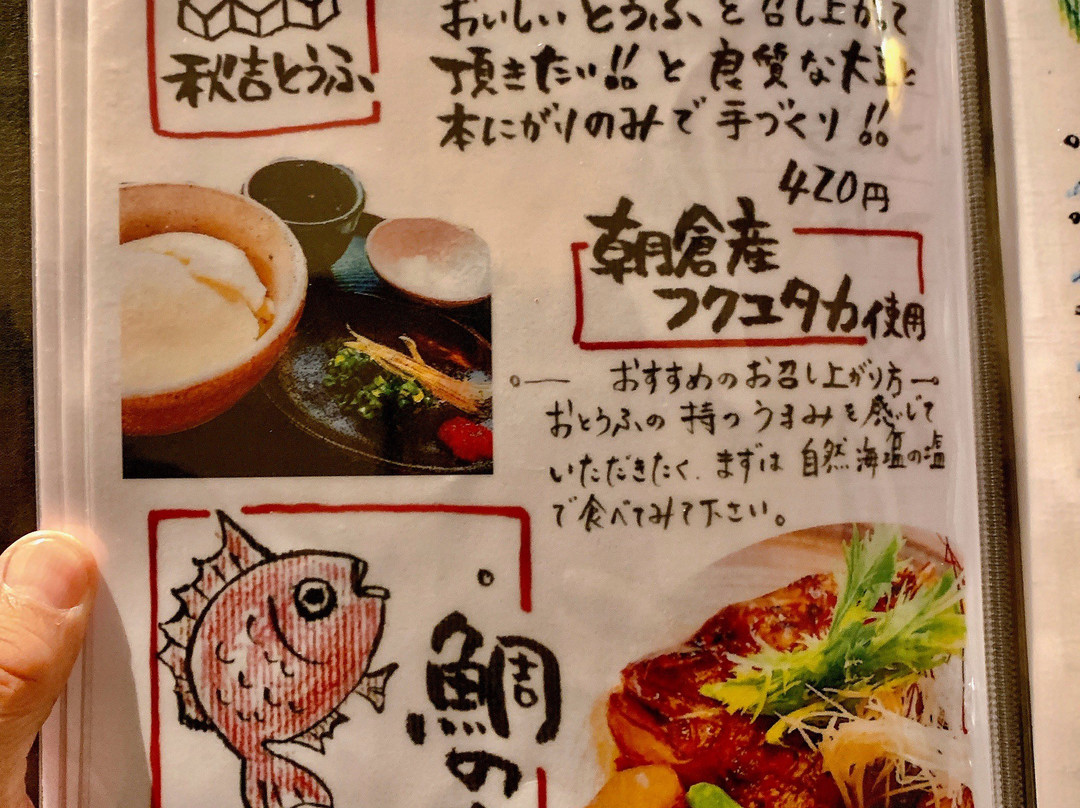 おいしいとうふを召し上がって
秋吉とうふ
頂きたい!!と良質な大豆と
本にがりのみで手づくり!!
420円
朝倉産
フクユタカ使用
おすすめのお召し上がり方
おとうふの持つうまみを感じて
いただきたく、まずは自然海塩の塩
で食べてみて下さい。
鯛の